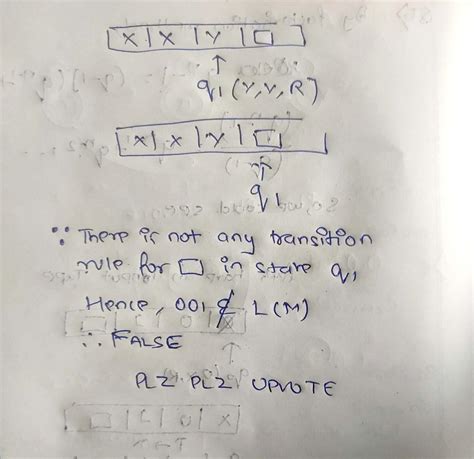 X | X | Y | □
↑
q₁ (Y, Y, R)
X | X | Y | □
↑
q₁
∵ There is not any transition
rule for □ in state q₁
Hence, 001 ∉ L(M)
∴ FALSE
PLZ PLZ UPVOTE